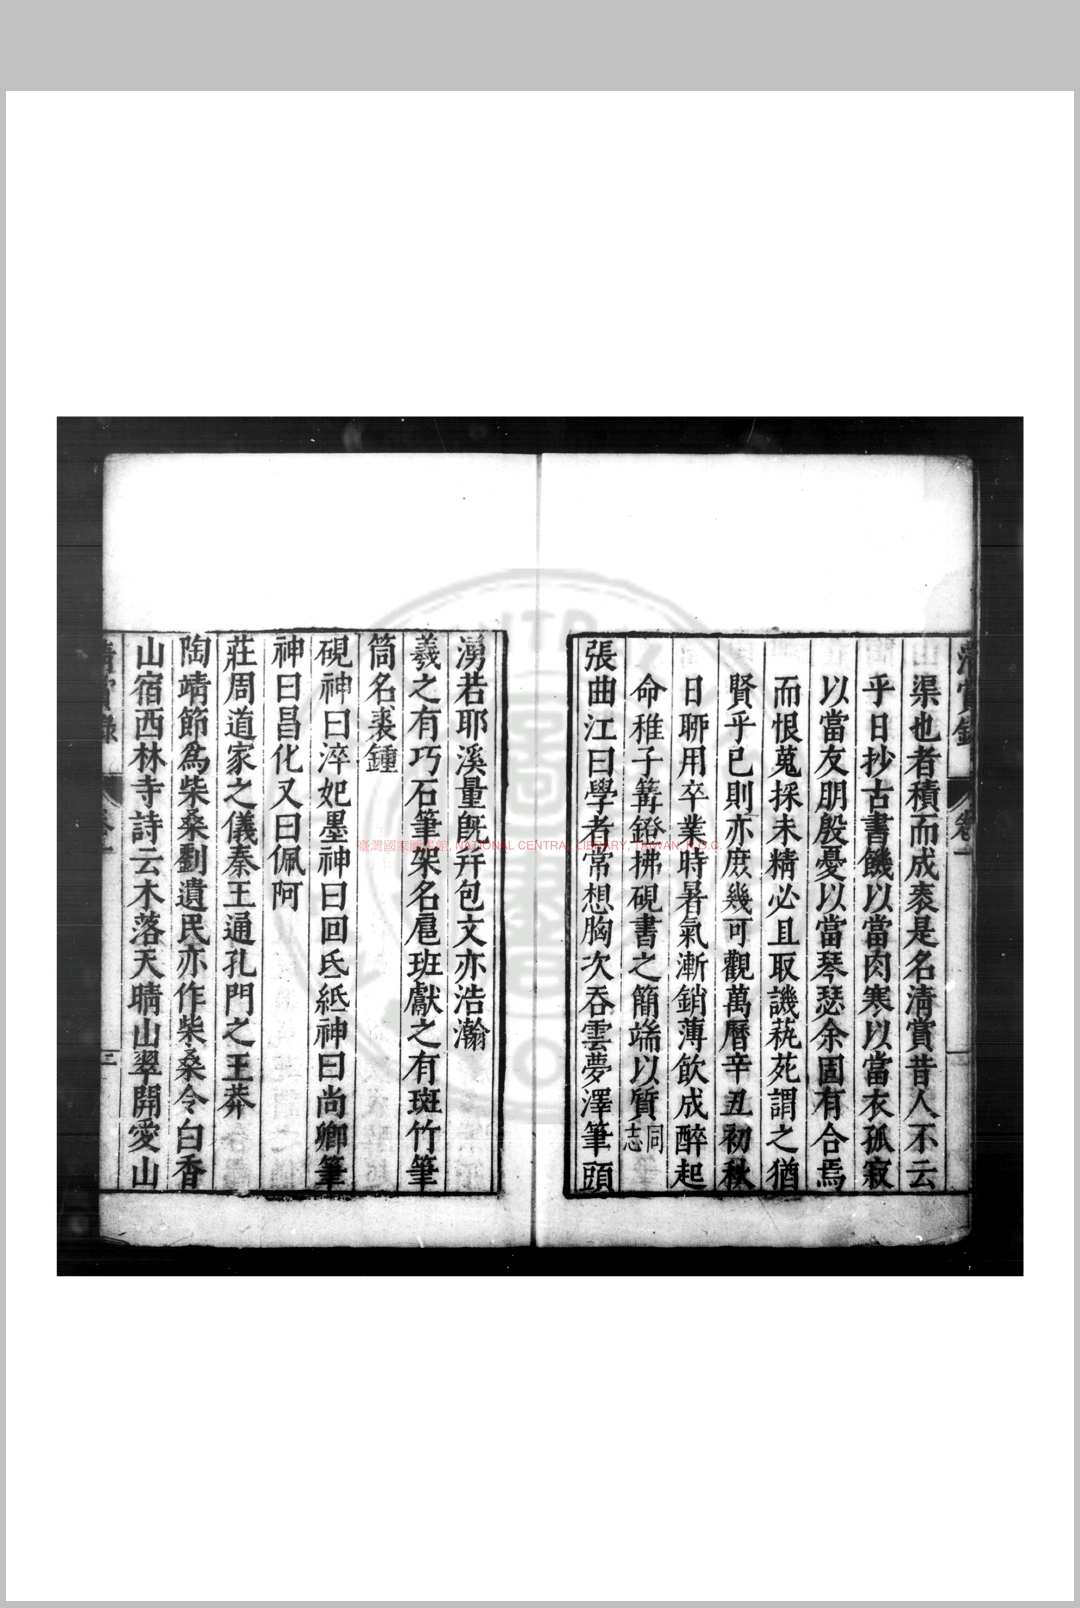 渠也者積而成袠是名清賞昔人不云
乎日抄古書饑以當肉寒以當衣孤寂
以當友朋殷憂以當琴瑟余固有合焉
而恨蒐採未精必且取譏藝苑謂之猶
賢乎已則亦庶幾可觀萬曆辛丑初秋
日聊用卒業時暑氣漸銷薄飲成醉起
命稚子篝鐙拂硯書之簡端以質同志
張曲江曰學者常想胸次吞雲夢澤筆頭
湧若耶溪量旣并包文亦浩瀚
羲之有巧石筆架名扈班獻之有斑竹筆
筒名裘鍾
硯神曰淬妃墨神曰回氐紙神曰尚卿筆
神曰昌化又曰佩阿
莊周道家之儀秦王通孔門之王莽
陶靖節爲柴桑劉遺民亦作柴桑令白香
山宿西林寺詩云木落天晴山翠開愛山
臺灣國家圖書館, NATIONAL CENTRAL LIBRARY, TAIWAN, R.O.C.